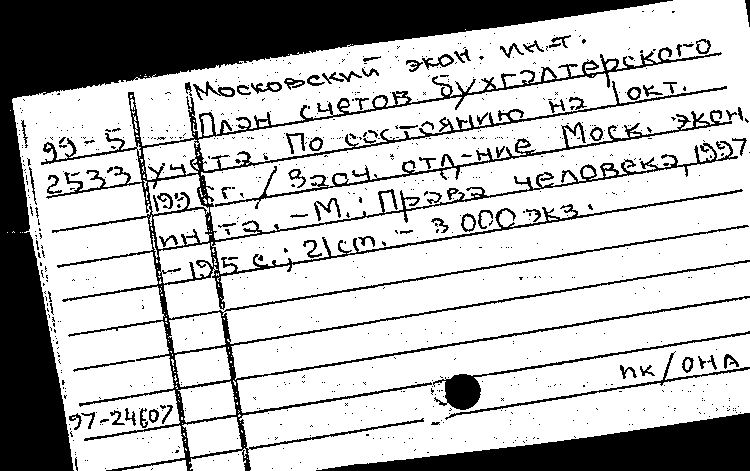 Московский экон. ин-т.
План счетов бухгалтерского
99-5 учета. По состоянию на 1 окт.
2533 1996 г. / Заоч. отд-ние Моск. экон.
ин-та. - М.: Права человека, 1997
- 195 с.; 21 cm. - 3 000 экз.
пк/ОНА
97-24607